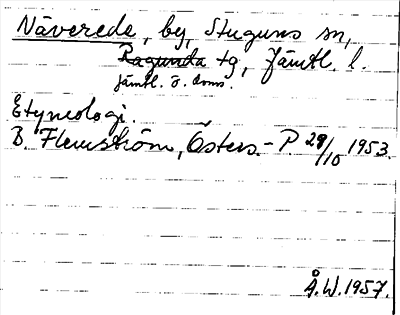 Näverede, by, Stuguns sn,
Ragunda tg, Jämtl. l.
jämtl. ö. doms.
Etymologi.
B. Flemström, Östers.-P. 29/10 1953.
Å.W. 1957.